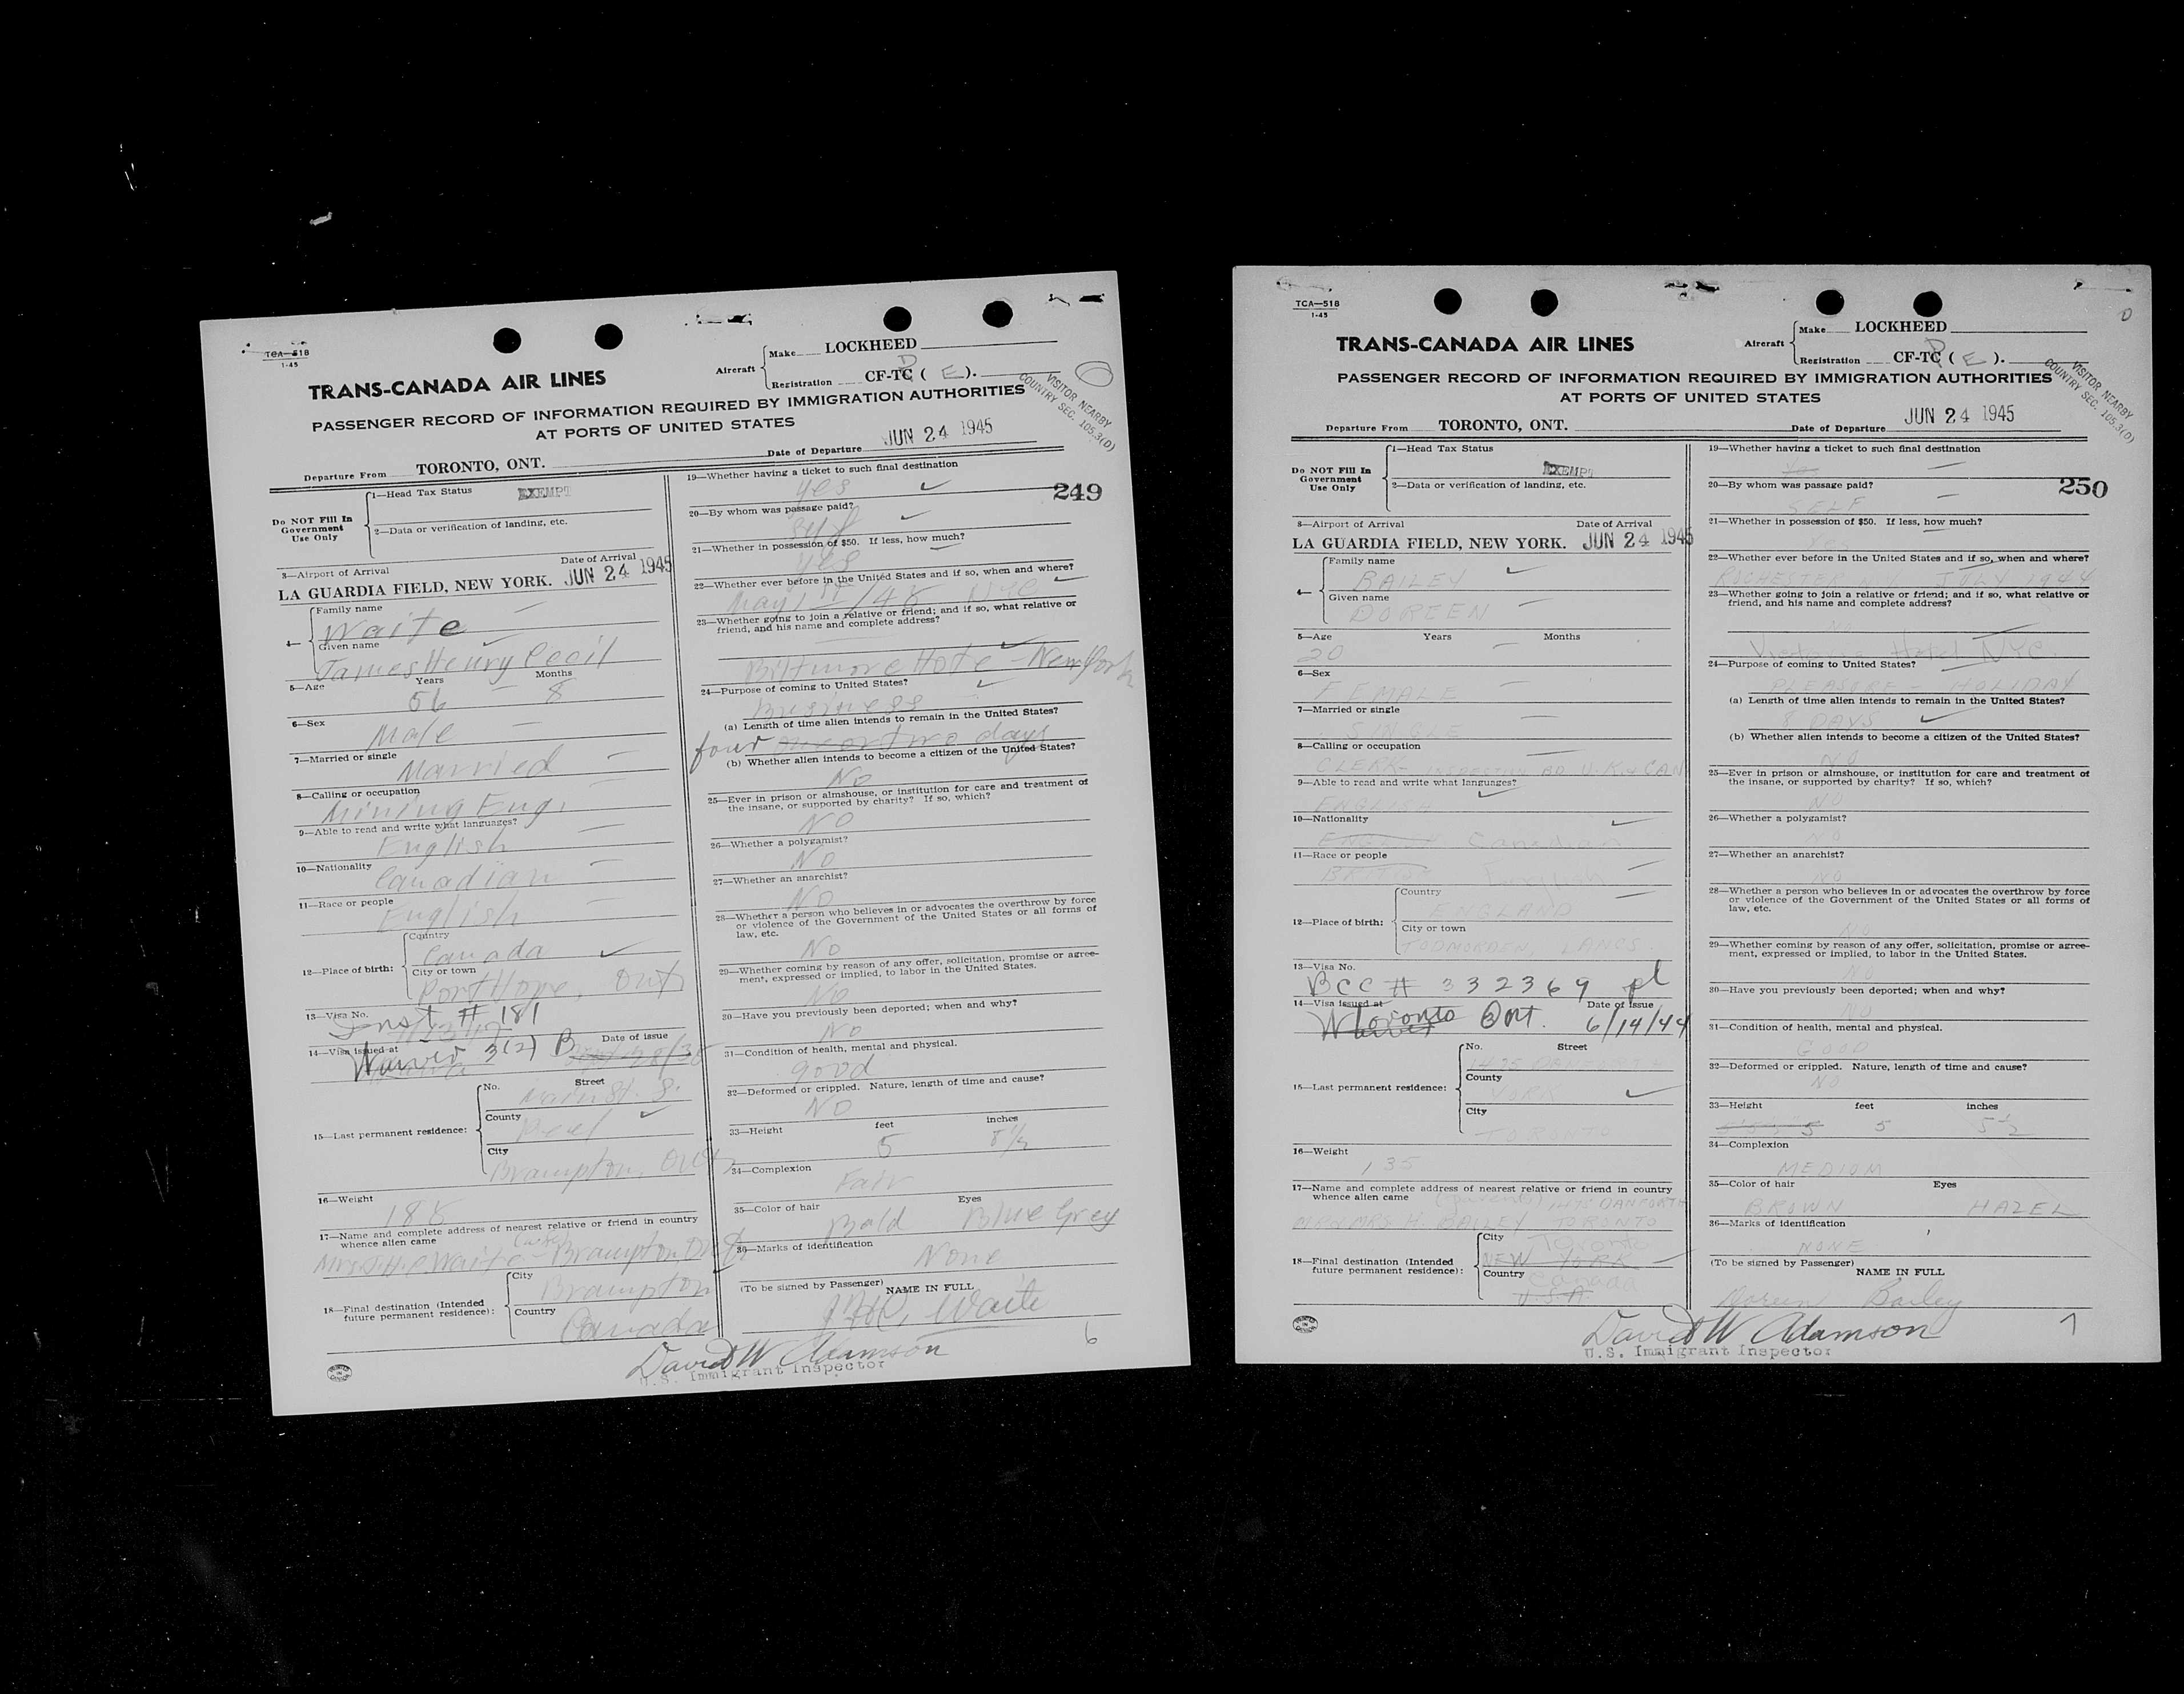 TCA—518
1-45
TRANS-CANADA AIR LINES
Aircraft
Make LOCKHEED
Registration CF-TC ( E ).
PASSENGER RECORD OF INFORMATION REQUIRED BY IMMIGRATION AUTHORITIES
AT PORTS OF UNITED STATES
VISITOR NEARBY
COUNTRY SEC. 105.3(D)
Departure From TORONTO, ONT. Date of Departure JUN 24 1945
Do NOT Fill In
Government
Use Only
1—Head Tax Status EXEMPT
2—Data or verification of landing, etc.
3—Airport of Arrival Date of Arrival
LA GUARDIA FIELD, NEW YORK. JUN 24 1945
4—
Family name
Waite
Given name
James Henry Cecil
5—Age Years Months
56 8
6—Sex
Male
7—Married or single
Married
8—Calling or occupation
Mining Eng.
9—Able to read and write what languages?
English
10—Nationality
Canadian
11—Race or people
English
12—Place of birth:
Country
Canada
City or town
Port Hope, Ont
13—Visa No.
Inst # 181
14—Visa issued at Date of issue
Waiver 3(2) B
15—Last permanent residence:
No. Street
Main St. S.
County
Peel
City
Brampton, Ont
16—Weight
188
17—Name and complete address of nearest relative or friend in country
whence alien came
Mrs. J.H.C. Waite (wife) - Brampton Ont
18—Final destination (Intended
future permanent residence):
City
Brampton
Country
Canada
19—Whether having a ticket to such final destination
yes
249
20—By whom was passage paid?
Self
21—Whether in possession of $50. If less, how much?
yes
22—Whether ever before in the United States and if so, when and where?
May 1st NYC
23—Whether going to join a relative or friend; and if so, what relative or
friend, and his name and complete address?
Biltmore Hote - New York
24—Purpose of coming to United States?
Business
(a) Length of time alien intends to remain in the United States?
four one or two days
(b) Whether alien intends to become a citizen of the United States?
No
25—Ever in prison or almshouse, or institution for care and treatment of
the insane, or supported by charity? If so, which?
NO
26—Whether a polygamist?
NO
27—Whether an anarchist?
No
28—Whether a person who believes in or advocates the overthrow by force
or violence of the Government of the United States or all forms of
law, etc.
NO
29—Whether coming by reason of any offer, solicitation, promise or agree-
ment, expressed or implied, to labor in the United States.
No
30—Have you previously been deported; when and why?
NO
31—Condition of health, mental and physical.
good
32—Deformed or crippled. Nature, length of time and cause?
NO
33—Height feet inches
5 8½
34—Complexion
Fair
35—Color of hair Eyes
Bald Blue Grey
36—Marks of identification
None
(To be signed by Passenger)
NAME IN FULL
J.H.C. Waite
David W. Adamson
U.S. Immigrant Inspector
6
TCA—518
1-45
TRANS-CANADA AIR LINES
Aircraft
Make LOCKHEED
Registration CF-TC ( E ).
PASSENGER RECORD OF INFORMATION REQUIRED BY IMMIGRATION AUTHORITIES
AT PORTS OF UNITED STATES
VISITOR NEARBY
COUNTRY SEC. 105.3(D)
Departure From TORONTO, ONT. Date of Departure JUN 24 1945
Do NOT Fill In
Government
Use Only
1—Head Tax Status
EXEMPT
2—Data or verification of landing, etc.
3—Airport of Arrival Date of Arrival
LA GUARDIA FIELD, NEW YORK. JUN 24 1945
4—
Family name
BAILEY
Given name
DOREEN
5—Age Years Months
20
6—Sex
FEMALE
7—Married or single
SINGLE
8—Calling or occupation
CLERK - INSPECTION BD U.K. & CAN
9—Able to read and write what languages?
ENGLISH
10—Nationality
Canadian
11—Race or people
BRITISH English
12—Place of birth:
Country
ENGLAND
City or town
TODMORDEN, LANCS.
13—Visa No.
BCC # 332369 pl
14—Visa issued at Date of issue
Toronto Ont. 6/14/44
15—Last permanent residence:
No. Street
1475 DANFORTH
County
YORK
City
TORONTO
16—Weight
135
17—Name and complete address of nearest relative or friend in country
whence alien came (parents) 1475 DANFORTH
MR & MRS H. BAILEY TORONTO
18—Final destination (Intended
future permanent residence):
City Toronto
NEW YORK
Country Canada
U.S.A.
19—Whether having a ticket to such final destination
250
20—By whom was passage paid?
SELF
21—Whether in possession of $50. If less, how much?
22—Whether ever before in the United States and if so, when and where?
ROCHESTER N.Y. JULY 1944
23—Whether going to join a relative or friend; and if so, what relative or
friend, and his name and complete address?
NO
Hotel NYC.
24—Purpose of coming to United States?
PLEASURE - HOLIDAY
(a) Length of time alien intends to remain in the United States?
8 DAYS
(b) Whether alien intends to become a citizen of the United States?
NO
25—Ever in prison or almshouse, or institution for care and treatment of
the insane, or supported by charity? If so, which?
NO
26—Whether a polygamist?
NO
27—Whether an anarchist?
NO
28—Whether a person who believes in or advocates the overthrow by force
or violence of the Government of the United States or all forms of
law, etc.
NO
29—Whether coming by reason of any offer, solicitation, promise or agree-
ment, expressed or implied, to labor in the United States.
NO
30—Have you previously been deported; when and why?
NO
31—Condition of health, mental and physical.
GOOD
32—Deformed or crippled. Nature, length of time and cause?
NO
33—Height feet inches
5 5½
34—Complexion
MEDIUM
35—Color of hair Eyes
BROWN HAZEL
36—Marks of identification
NONE
(To be signed by Passenger)
NAME IN FULL
Doreen Bailey
David W. Adamson
U.S. Immigrant Inspector
7